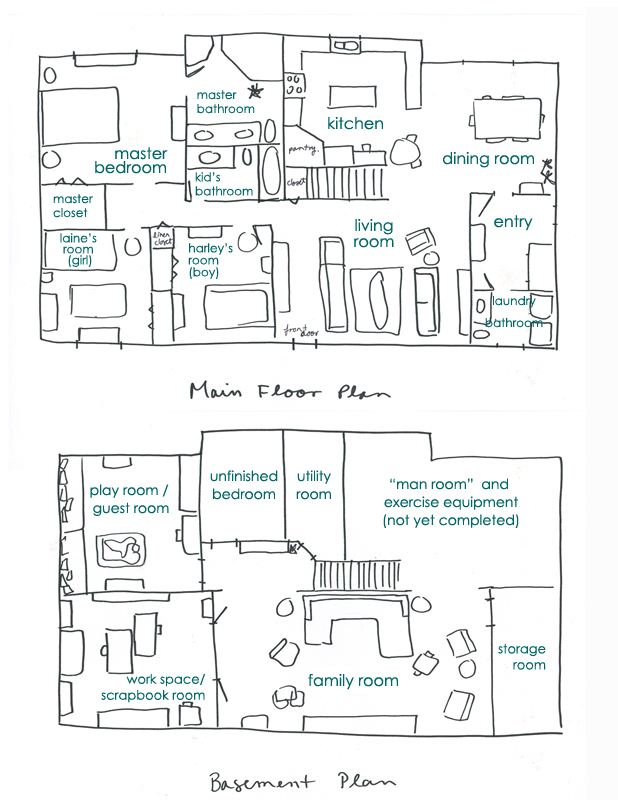 master
bathroom
kitchen
master
bedroom
pantry
dining room
kid's
bathroom
closet
master
closet
living
room
entry
laine's
room
(girl)
linen
closet
harley's
room
(boy)
laundry
bathroom
front
door
Main Floor Plan
unfinished
bedroom
utility
room
"man room" and
exercise equipment
(not yet completed)
play room /
guest room
storage
room
work space/
scrapbook room
family room
Basement Plan